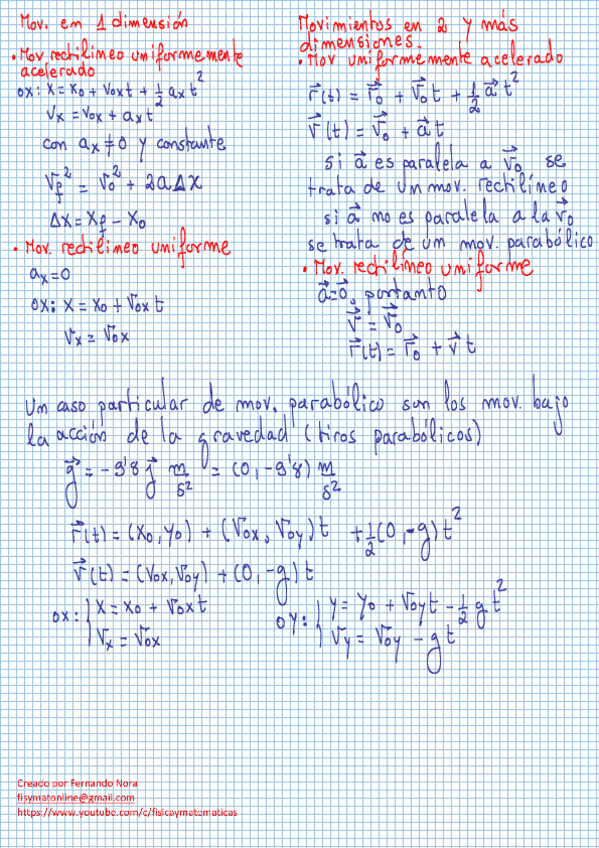 Mov. en 1 dimensión
• Mov rectilineo uniformemente
acelerado
ox: x = x₀ + v₀ₓt + ½ aₓ t²
vₓ = v₀ₓ + aₓt
con aₓ ≠ 0 y constante
v_f² = v₀² + 2aΔx
Δx = x_f − x₀
• Mov. rectilineo uniforme
aₓ = 0
ox: x = x₀ + v₀ₓ t
vₓ = v₀ₓ
Movimientos en 2 y más
dimensiones.
• Mov uniformemente acelerado
r⃗(t) = r⃗₀ + v⃗₀t + ½ a⃗ t²
v⃗(t) = v⃗₀ + a⃗t
si a⃗ es paralela a v⃗₀ se
trata de un mov. rectilíneo
si a⃗ no es paralela a la v⃗₀
se trata de un mov. parabólico
• Mov. rectilíneo uniforme
a⃗=0⃗, portanto
v⃗ = v⃗₀
r⃗(t) = r⃗₀ + v⃗ t
Un caso particular de mov. parabólico son los mov. bajo
la acción de la gravedad (tiros parabólicos)
g⃗ = −9'8 j⃗ m/s² = (0, −9'8) m/s²
r⃗(t) = (x₀, y₀) + (v₀ₓ, v₀y)t + ½(0, −g)t²
v⃗(t) = (v₀ₓ, v₀y) + (0, −g)t
ox: { x = x₀ + v₀ₓt
vₓ = v₀ₓ
oy: { y = y₀ + v₀yt − ½ g t²
vy = v₀y − g t
Creado por Fernando Nora
fisymatonline@gmail.com
https://www.youtube.com/c/fisicaymatematicas